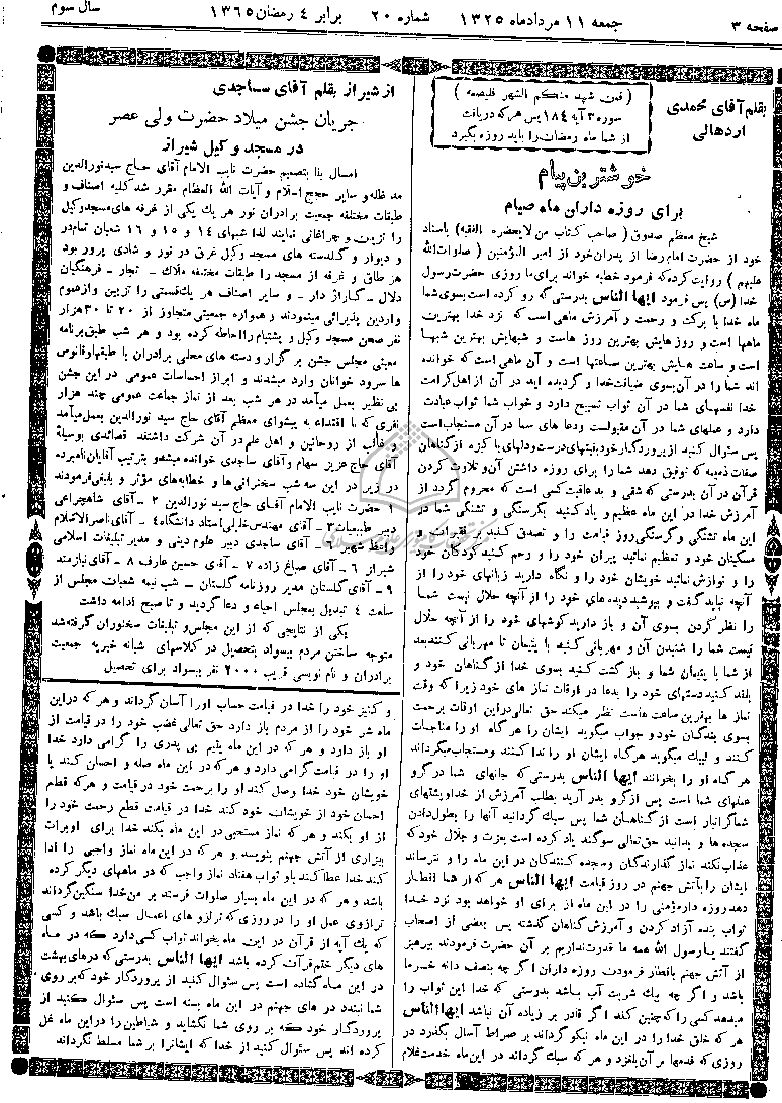 صفحه ۳
جمعه ۱۱ مردادماه ۱۳۲۵
شماره ۲۰
برابر ٤ رمضان ۱۳٦۵
سال سوم
بقلم آقای محمدی
اردهالی
( فمن شهد منکم الشهر فلیصمه )
سوره ۲ آیه ۱۸٤ پس هر که دریافت
از شما ماه رمضان را باید روزه بگیرد
خوشترین پیام
برای روزه داران ماه صیام
شیخ معظم صدوق ( صاحب کتاب من لایحضره الفقیه ) باسناد
خود از حضرت امام رضا از پدران خود از امیر المؤمنین ( صلوات الله
علیهم ) روایت کرده که فرمود خطبه خواند برای ما روزی حضرت رسول
خدا (ص) پس فرمود ایها الناس بدرستی که رو کرده است بسوی شما
ماه خدا با برکت و رحمت و آمرزش ماهی است که نزد خدا بهترین
ماهها است و روزهایش بهترین روز هاست و شبهایش بهترین شبها
است و ساعت هایش بهترین ساعتها است و آن ماهی است که خوانده
اند شما را در آن بسوی ضیافت خدا و گردیده اید در آن از اهل کرامت
خدا نفسهای شما در آن ثواب تسبیح دارد و خواب شما ثواب عبادت
دارد و عملهای شما در آن مقبولست و دعا های شما در آن مستجاب است
پس سئوال کنید از پروردگار خود بنیتهای درست و دلهای پاکیزه از گناهان
صفات ذمیمه که توفیق دهد شما را برای روزه داشتن آن و تلاوت کردن
قرآن در آن بدرستی که شقی و بد عاقبت کسی است که محروم گردد از
آمرزش خدا در این ماه عظیم و یاد کنید بگرسنگی و تشنگی شما در
این ماه تشنگی و گرسنگی روز قیامت را و تصدق کنید بر فقیران و
مسکینان خود و تعظیم نمائید پیران خود را و رحم کنید کودکان خود
را و نوازش نمائید خویشان خود را و نگاه دارید زبانهای خود را از
آنچه نباید گفت و بپوشید دیده های خود را از آنچه حلال نیست شما
را نظر کردن بسوی آن و باز دارید گوشهای خود را از آنچه حلال
نیست شما را شنیدن آن و مهربانی کنید با یتیمان تا مهربانی کنند بعد
از شما با یتیمان شما و باز گشت کنید بسوی خدا از گناهان خود و
بلند کنید دستهای خود را بدعا در اوقات نماز های خود زیرا که وقت
نماز ها بهترین ساعت هاست نظر میکند حق تعالی در این اوقات برحمت
بسوی بندگان خود و جواب میگوید ایشان را هر گاه او را مناجات
کنند و لبیک میگوید هر گاه ایشان او را ندا کنند و مستجاب میگرداند
هر گاه او را بخوانند ایها الناس بدرستی که جانهای شما در گرو
عملهای شما است پس از گرو بدر آرید بطلب آمرزش از خدا و پشتهای
شما گرانبار است از گناهان شما پس سبک گردانید آنها را بطول دادن
سجده ها و بدانید حق تعالی سوگند یاد کرده است بعزت و جلال خود که
عذاب نکند نماز گذارندگان و سجده کنندگان در این ماه را و نترساند
ایشان را بآتش جهنم در روز قیامت ایها الناس هر که از شما افطار
دهد روزه دار مؤمنی را در این ماه از برای او خواهد بود نزد خدا
ثواب بنده آزاد کردن و آمرزش گناهان گذشته پس بعضی از اصحاب
گفتند یا رسول الله همه ما قدرت نداریم بر آن حضرت فرمودند بپرهیز
از آتش جهنم بافطار فرمودن روزه داران اگر چه بنصف دانه خرما
باشد و اگر چه بیک شربت آب باشد بدرستی که خدا این ثواب را
میدهد کسی را که چنین کند اگر قادر بر زیاده آن نباشد ایها الناس
هر که خلق خدا را در این ماه نیکو گرداند بر صراط آسان بگذرد در
روزی که قدمها بر آن بلغزد و هر که سبک گرداند در این ماه خدمت غلام
از شیراز بقلم آقای ساجدی
جریان جشن میلاد حضرت ولی عصر
در مسجد وکیل شیراز
امسال بنا بتصمیم حضرت نایب الامام آقای حاج سید نورالدین
مد ظله و سایر حجج اسلام و آیات الله العظام مقرر شد کلیه اصناف و
طبقات مختلفه جمعیت برادران نور هر یک یکی از غرفه های مسجد وکیل
را تزیین و چراغانی نمایند لذا شبهای ۱٤ و ۱۵ و ۱٦ شعبان تمام در
و دیوار و گلدسته های مسجد وکیل غرق در نور و شادی پرور بود
هر طاق و غرفه از مسجد را طبقات مختلفه ملاک - تجار - فرهنگیان
دلال - گاراژدار - و سایر اصناف هر یک قسمتی را تزیین و از هموم
واردین پذیرائی مینمودند و همواره جمعیتی متجاوز از ۲۰ تا ۳۰ هزار
نفر صحن مسجد وکیل و پشتبام را احاطه کرده بود و هر شب طبق برنامه
معینی مجلس جشن بر گزار و دسته های محلی برادران با طبقها و فانوس
ها سرود خوانان وارد میشدند و ابراز احساسات عمومی در این جشن
بی نظیر بعمل میآمد در هر شب بعد از نماز جماعت عمومی چند هزار
نفری که با اقتداء به پیشوای معظم آقای حاج سید نور الدین بعمل میآمد
و غالب از روحانین و اهل علم در آن شرکت داشتند قصائدی بوسیله
آقای حاج عزیز سهام و آقای ساجدی خوانده میشد و بترتیب آقایان نامبرده
در زیر در این سه شب سخنرانی ها و خطابه های مؤثر و بلیغی فرمودند
۱ حضرت نایب الامام آقای حاج سید نورالدین ۲ - آقای شاهچراغی
دبیر طبیعیات ۳ - آقای مهندس خلیلی استاد دانشگاه ٤ - آقای ناصر الاسلام
واعظ شهیر ۵ - آقای ساجدی دبیر علوم دینی و مدیر تبلیغات اسلامی
شیراز ٦ - آقای صباغ زاده ۷ - آقای حسین عارف ۸ - آقای نیازمند
۹ - آقای گلستان مدیر روزنامه گلستان - شب نیمه شعبان مجلس از
ساعت ٤ تبدیل بمجلس احیاء و دعا گردید و تا صبح ادامه داشت
یکی از نتایجی که از این مجلس و تبلیغات سخنوران گرفته شد
متوجه ساختن مردم بیسواد بتحصیل در کلاسهای شبانه خیریه جمعیت
برادران و نام نویسی قریب ۲۰۰۰ نفر بیسواد برای تحصیل
و کنیز خود را خدا در قیامت حساب او را آسان گرداند و هر که در این
ماه شر خود را از مردم باز دارد حق تعالی غضب خود را در قیامت از
او باز دارد و هر که در این ماه یتیم بی پدری را گرامی دارد خدا
او را در قیامت گرامی دارد و هر که در این ماه صله و احسان کند با
خویشان خود خدا وصل کند او را برحمت خود در قیامت و هر که قطع
احسان خود از خویشان خود کند خدا در قیامت قطع رحمت خود را
از او بکند و هر که نماز مستحبی در این ماه بکند خدا برای او برات
بیزاری از آتش جهنم بنویسد و هر که در این ماه نماز واجبی را ادا
کند خدا عطا کند باو ثواب هفتاد نماز واجب که در ماههای دیگر کرده
باشد و هر که در این ماه بسیار صلوات فرستد بر من خدا سنگین گرداند
ترازوی عمل او را در روزی که ترازو های اعمال سبک باشد و کسی
که یک آیه از قرآن در این ماه بخواند ثواب کسی دارد که در ماه
های دیگر ختم قرآن کرده باشد ایها الناس بدرستی که درهای بهشت
در این ماه گشاده است پس سئوال کنید از پروردگار خود که بر روی
شما نبندد در های جهنم در این ماه بسته است پس سئوال کنید از
پروردگار خود که بر روی شما نگشاید و شیاطین را در این ماه غل
کرده اند پس سئوال کنید از خدا که ایشان را بر شما مسلط نگرداند